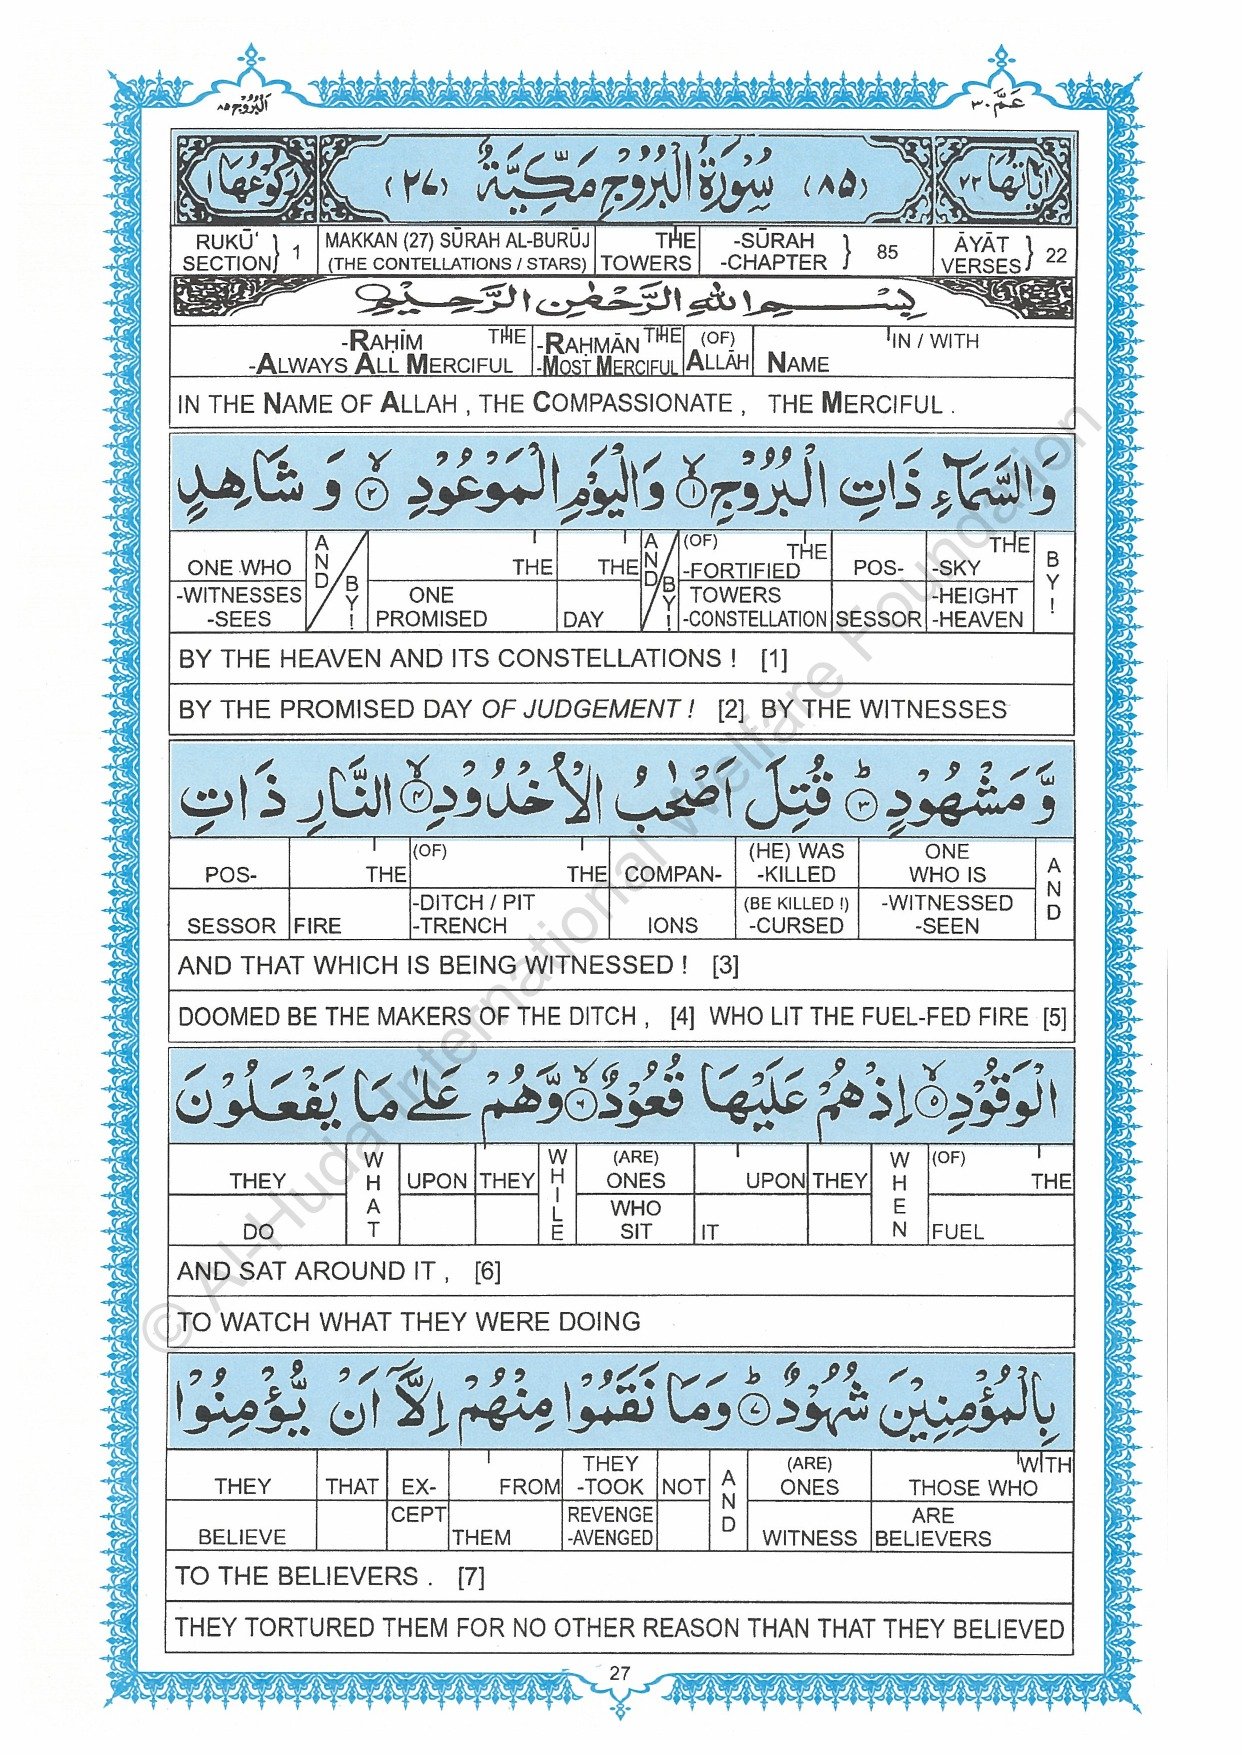 البروج ٨٥
عم ٣٠
اٰيَاتُهَا ٢٢ (٨٥) سُوْرَةُ الْبُرُوْجِ مَكِّيَّةٌ (٢٧) رُكُوْعُهَا ١
RUKŪ‘ SECTION} 1 MAKKAN (27) SŪRAH AL-BURŪJ (THE CONTELLATIONS / STARS) THE TOWERS -SŪRAH -CHAPTER } 85 ĀYĀT VERSES} 22
بِسْمِ اللّٰهِ الرَّحْمٰنِ الرَّحِيْمِ
-RAḤĪM THE -RAḤMĀN THE (OF) IN / WITH
-ALWAYS ALL MERCIFUL -MOST MERCIFUL ALLĀH NAME
IN THE NAME OF ALLAH , THE COMPASSIONATE , THE MERCIFUL .
وَالسَّمَآءِ ذَاتِ الْبُرُوْجِ ۙ﴿١﴾ وَالْيَوْمِ الْمَوْعُوْدِ ۙ﴿٢﴾ وَ شَاهِدٍ
ONE WHO AND/BY! THE THE AND/BY! (OF) THE -FORTIFIED POS- THE -SKY BY!
-WITNESSES -SEES ONE PROMISED DAY TOWERS -CONSTELLATION SESSOR -HEIGHT -HEAVEN
BY THE HEAVEN AND ITS CONSTELLATIONS ! [1]
BY THE PROMISED DAY OF JUDGEMENT ! [2] BY THE WITNESSES
وَّ مَشْهُوْدٍ ؕ﴿٣﴾ قُتِلَ اَصْحٰبُ الْاُخْدُوْدِ ۙ﴿٤﴾ النَّارِ ذَاتِ
POS- THE (OF) THE COMPAN- (HE) WAS -KILLED ONE WHO IS AND
SESSOR FIRE -DITCH / PIT -TRENCH IONS (BE KILLED !) -CURSED -WITNESSED -SEEN
AND THAT WHICH IS BEING WITNESSED ! [3]
DOOMED BE THE MAKERS OF THE DITCH , [4] WHO LIT THE FUEL-FED FIRE [5]
الْوَقُوْدِ ۙ﴿٥﴾ اِذْ هُمْ عَلَيْهَا قُعُوْدٌ ۙ﴿٦﴾ وَّهُمْ عَلٰى مَا يَفْعَلُوْنَ
THEY WHAT UPON THEY WHILE (ARE) ONES UPON THEY WHEN (OF) THE
DO WHO SIT IT FUEL
AND SAT AROUND IT , [6]
TO WATCH WHAT THEY WERE DOING
بِالْمُؤْمِنِيْنَ شُهُوْدٌ ؕ﴿٧﴾ وَمَا نَقَمُوْا مِنْهُمْ اِلَّاۤ اَنْ يُّؤْمِنُوْا
THEY THAT EX- FROM THEY -TOOK NOT AND (ARE) ONES WITH THOSE WHO
BELIEVE CEPT THEM REVENGE -AVENGED WITNESS ARE BELIEVERS
TO THE BELIEVERS . [7]
THEY TORTURED THEM FOR NO OTHER REASON THAN THAT THEY BELIEVED
27
© Al-Huda International Welfare Foundation